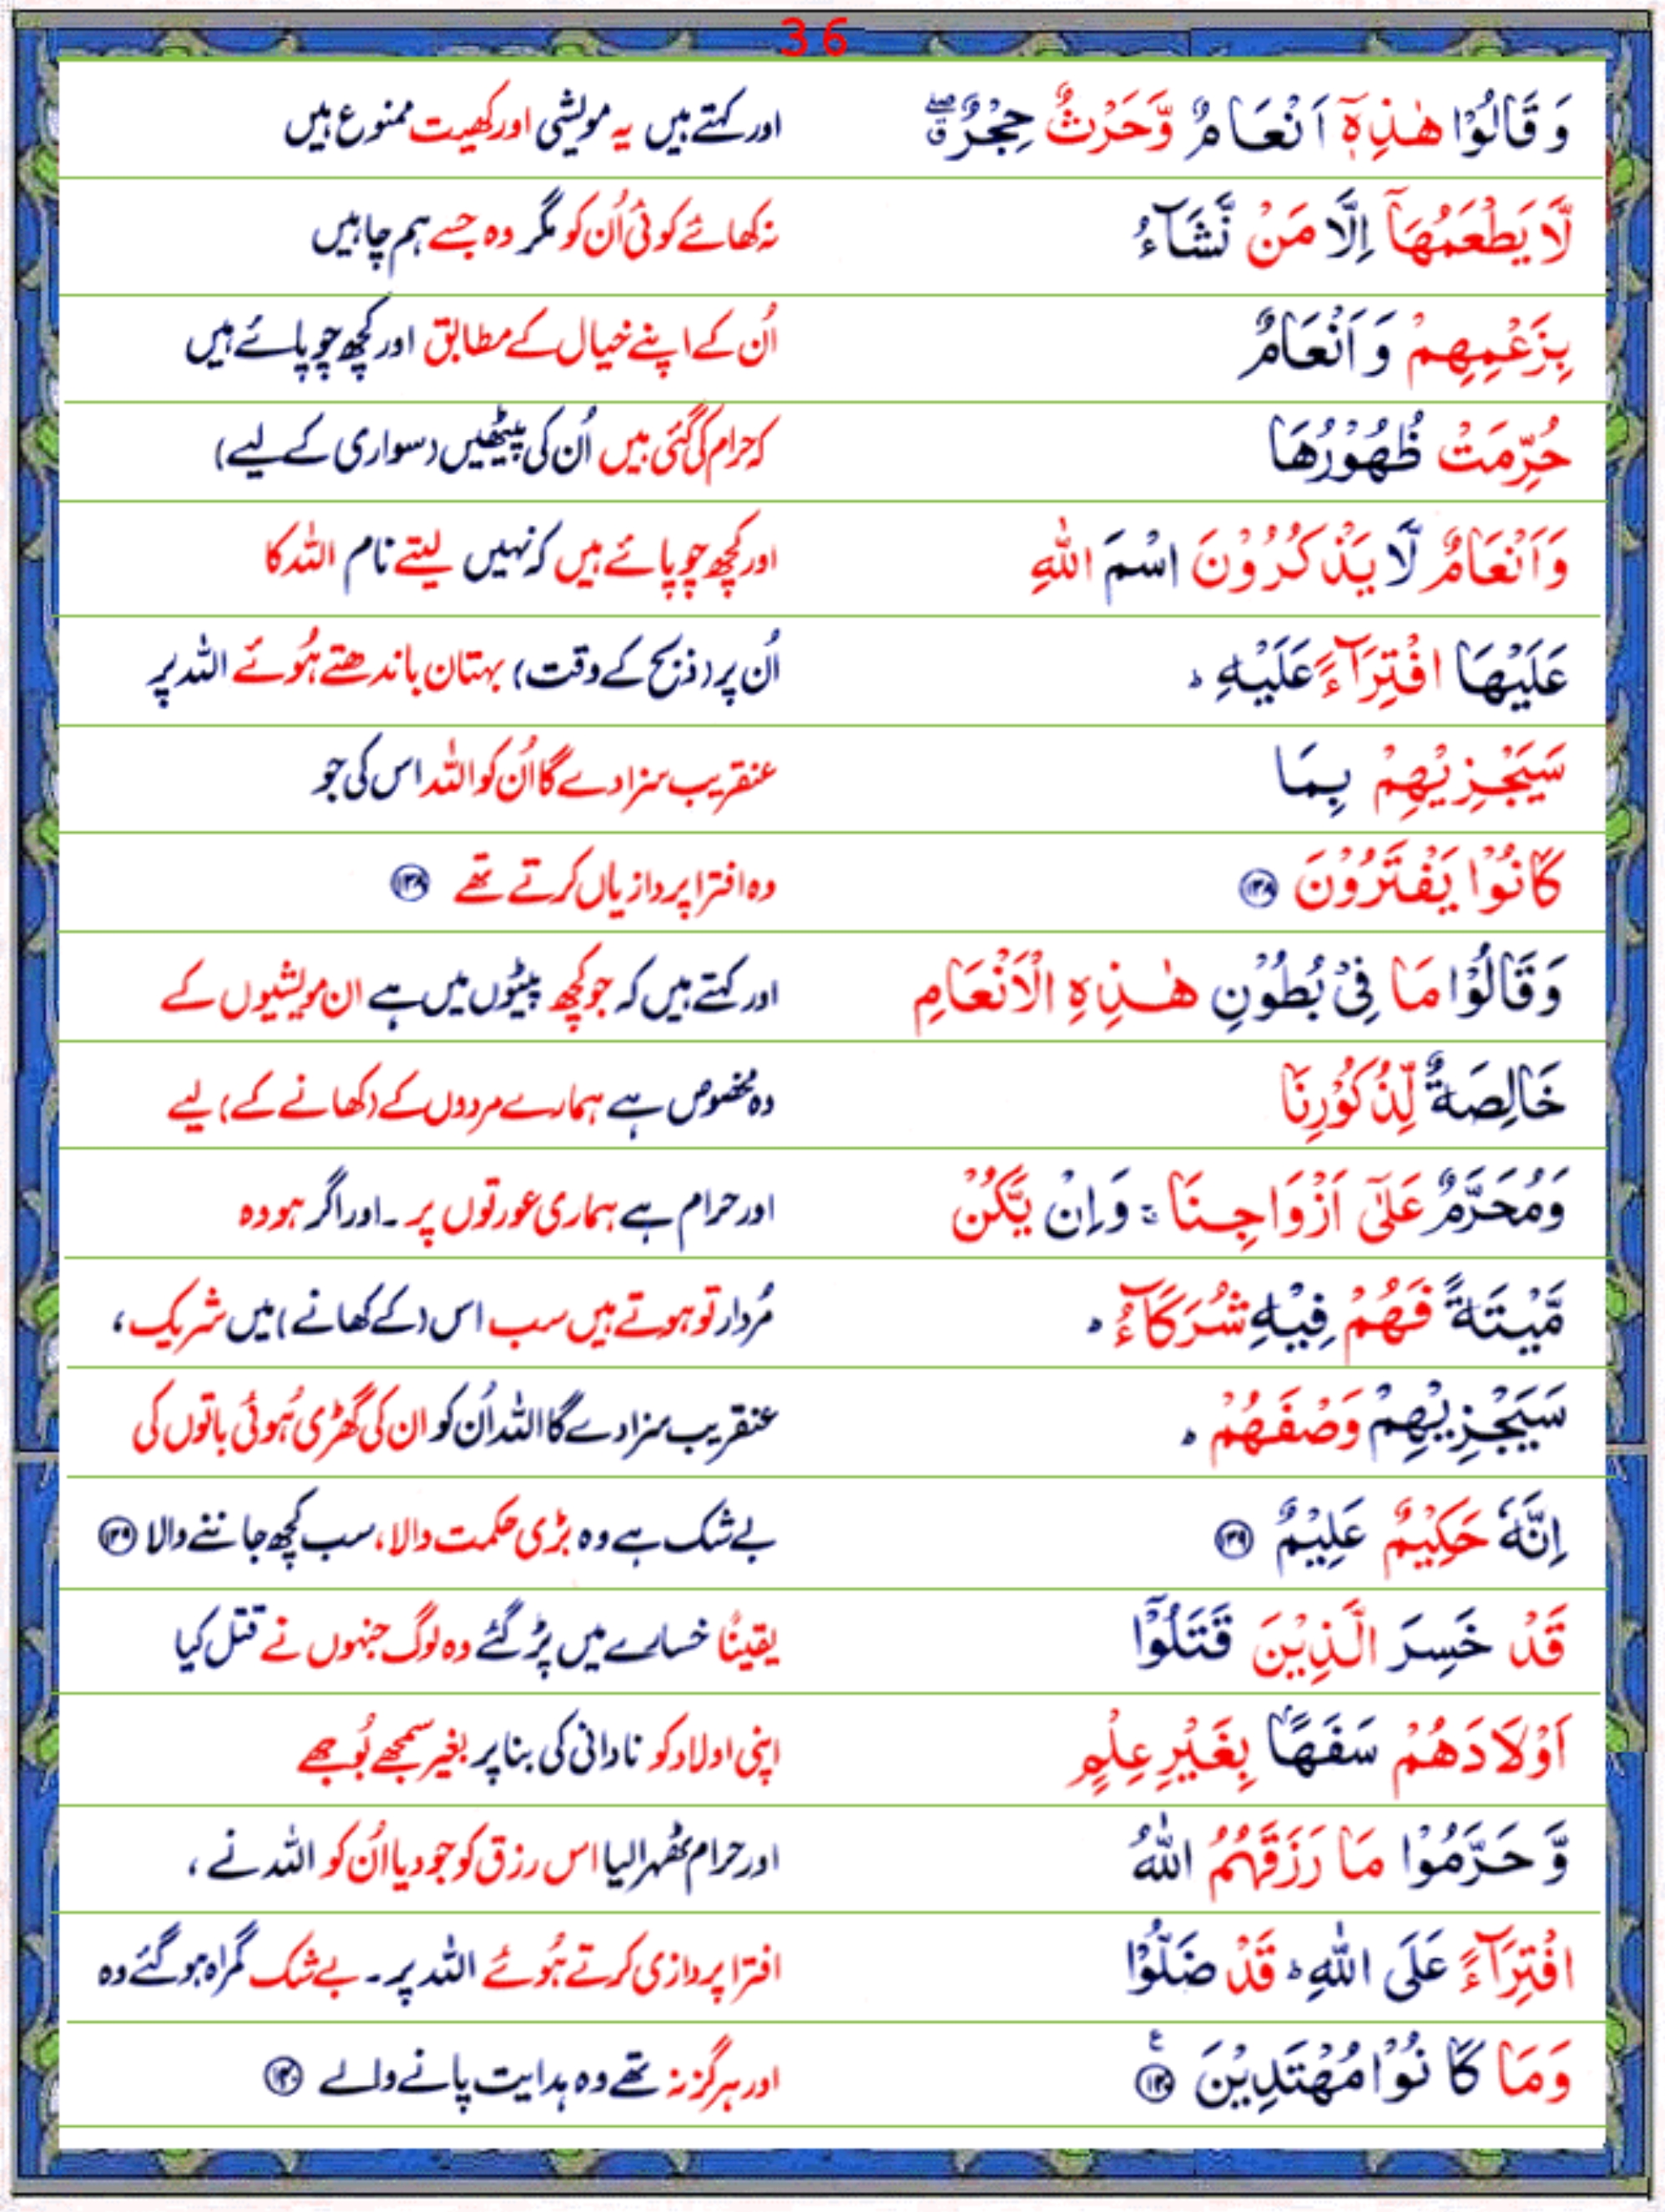 36
وَقَالُوْا هٰذِهٖۤ اَنْعَامٌ وَّحَرْثٌ حِجْرٌ ۖق اور کہتے ہیں یہ مویشی اور کھیت ممنوع ہیں
لَّا یَطْعَمُهَاۤ اِلَّا مَنْ نَّشَآءُ نہ کھائے کوئی اُن کو مگر وہ جسے ہم چاہیں
بِزَعْمِهِمْ وَاَنْعَامٌ اُن کے اپنے خیال کے مطابق اور کچھ چوپائے ہیں
حُرِّمَتْ ظُهُوْرُهَا کہ حرام کی گئی ہیں اُن کی پیٹھیں (سواری کے لیے)
وَاَنْعَامٌ لَّا یَذْكُرُوْنَ اسْمَ اللّٰهِ اور کچھ چوپائے ہیں کہ نہیں لیتے نام اللہ کا
عَلَیْهَا افْتِرَآءً عَلَیْهِ ؕ اُن پر (ذبح کے وقت) بہتان باندھتے ہُوئے اللہ پر
سَیَجْزِیْهِمْ بِمَا عنقریب سزا دے گا اُن کو اللہ اس کی جو
كَانُوْا یَفْتَرُوْنَ ۱۳۸ وہ افترا پردازیاں کرتے تھے ۱۳۸
وَقَالُوْا مَا فِیْ بُطُوْنِ هٰذِهِ الْاَنْعَامِ اور کہتے ہیں کہ جو کچھ پیٹوں میں ہے ان مویشیوں کے
خَالِصَةٌ لِّذُكُوْرِنَا وہ مخصوص ہے ہمارے مردوں کے (کھانے کے) لیے
وَمُحَرَّمٌ عَلٰۤی اَزْوَاجِنَا ۚ وَاِنْ یَّكُنْ اور حرام ہے ہماری عورتوں پر ۔ اور اگر ہو وہ
مَّیْتَةً فَهُمْ فِیْهِ شُرَكَآءُ ؕ مُردار تو ہوتے ہیں سب اس (کے کھانے) میں شریک ،
سَیَجْزِیْهِمْ وَصْفَهُمْ ؕ عنقریب سزا دے گا اللہ اُن کو ان کی گھڑی ہُوئی باتوں کی
اِنَّهٗ حَكِیْمٌ عَلِیْمٌ ۱۳۹ بے شک ہے وہ بڑی حکمت والا ، سب کچھ جاننے والا ۱۳۹
قَدْ خَسِرَ الَّذِیْنَ قَتَلُوْۤا یقینًا خسارے میں پڑ گئے وہ لوگ جنہوں نے قتل کیا
اَوْلَادَهُمْ سَفَهًا بِغَیْرِ عِلْمٍ اپنی اولاد کو نادانی کی بنا پر بغیر سمجھے بُوجھے
وَّحَرَّمُوْا مَا رَزَقَهُمُ اللّٰهُ اور حرام ٹھہرا لیا اس رزق کو جو دیا اُن کو اللہ نے ،
افْتِرَآءً عَلَی اللّٰهِ ؕ قَدْ ضَلُّوْا افترا پردازی کرتے ہُوئے اللہ پر ۔ بے شک گمراہ ہو گئے وہ
وَمَا كَانُوْا مُهْتَدِیْنَ ۱۴۰ ع اور ہرگز نہ تھے وہ ہدایت پانے والے ۱۴۰